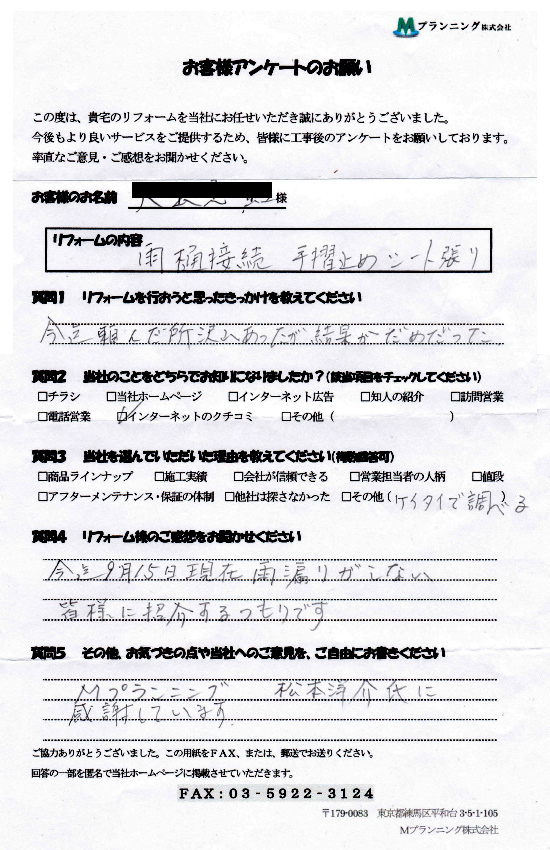 Mプランニング株式会社
お客様アンケートのお願い
この度は、貴宅のリフォームを当社にお任せいただき誠にありがとうございました。
今後もより良いサービスをご提供するため、皆様に工事後のアンケートをお願いしております。
率直なご意見・ご感想をお聞かせください。
お客様のお名前 様
リフォームの内容
雨樋接続 手摺止めシート張り
質問1 リフォームを行おうと思ったきっかけを教えてください
今迄頼んだ所沢山あったが結果がだめだった
質問2 当社のことをどちらでお知りになりましたか?(該当項目をチェックしてください)
□チラシ □当社ホームページ □インターネット広告 □知人の紹介 □訪問営業
□電話営業 ☑インターネットのクチコミ □その他( )
質問3 当社を選んでいただいた理由を教えてください(複数回答可)
□商品ラインナップ □施工実績 □会社が信頼できる □営業担当者の人柄 □値段
□アフターメンテナンス・保証の体制 □他社は探さなかった □その他(ケイタイで調べる)
質問4 リフォーム後のご感想をお聞かせください
今迄9月15日現在雨漏りがしない
皆様に紹介するつもりです
質問5 その他、お気づきの点や当社へのご意見を、ご自由にお書きください
Mプランニング 松本洋介氏に
感謝しています。
ご協力ありがとうございました。この用紙をFAX、または、郵送でお送りください。
回答の一部を匿名で当社ホームページに掲載させていただきます。
FAX:03-5922-3124
〒179-0083 東京都練馬区平和台3-5-1-105
Mプランニング株式会社